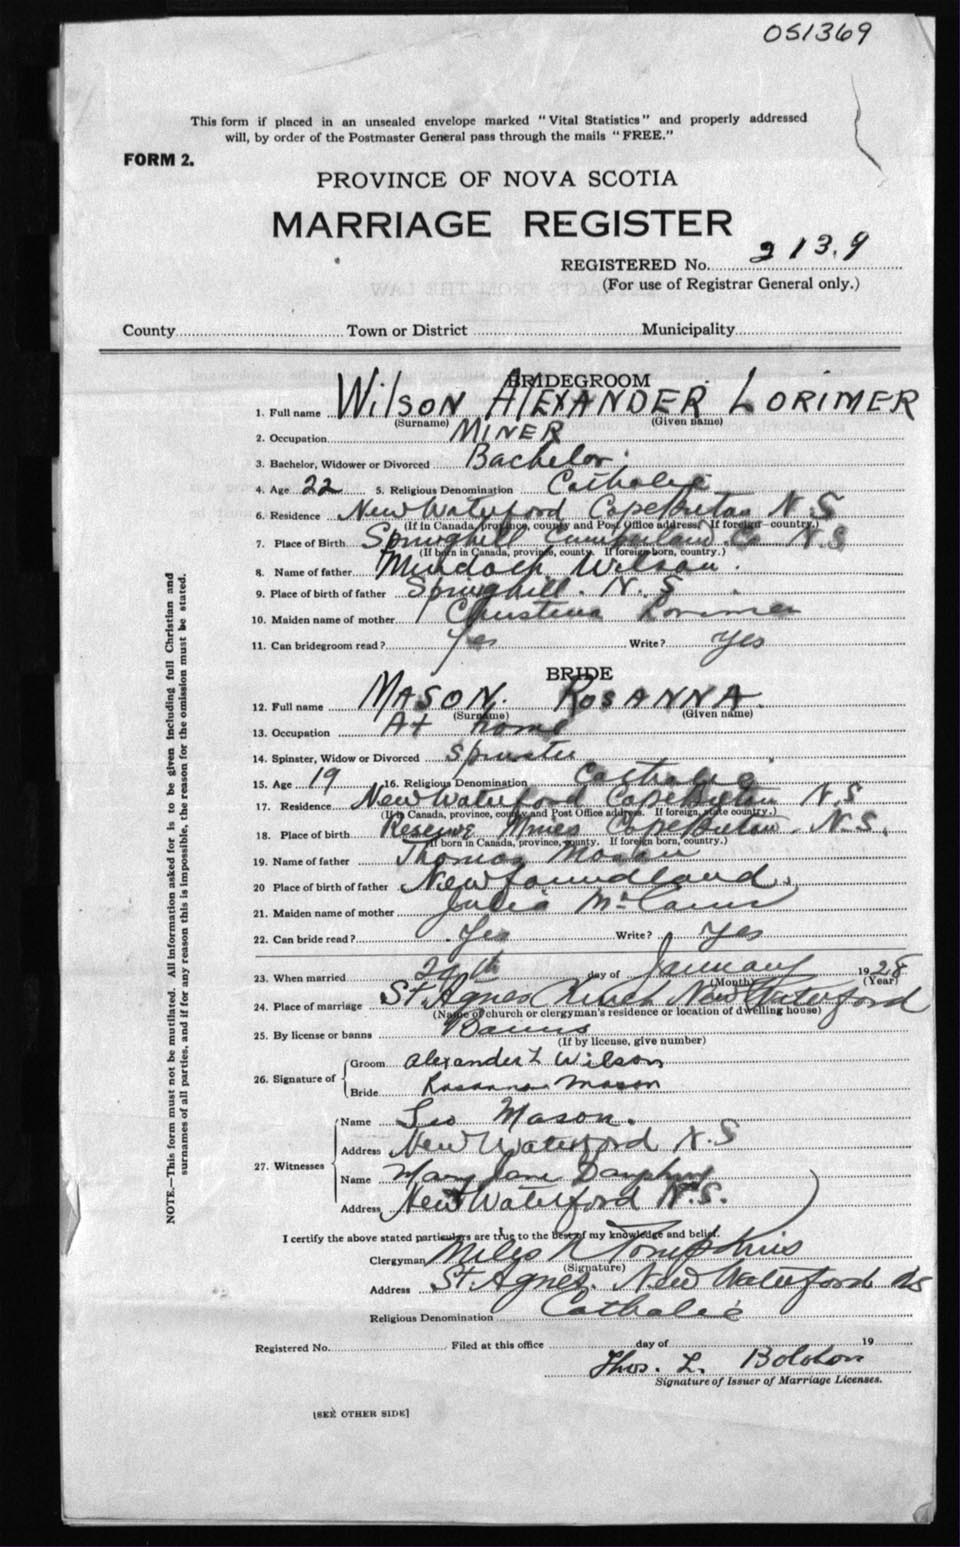 051369
This form if placed in an unsealed envelope marked "Vital Statistics" and properly addressed
will, by order of the Postmaster General pass through the mails "FREE."
FORM 2.
PROVINCE OF NOVA SCOTIA
MARRIAGE REGISTER
REGISTERED No. 2139
(For use of Registrar General only.)
County Town or District Municipality
BRIDEGROOM
1. Full name WILSON ALEXANDER LORIMER
(Surname) (Given name)
2. Occupation MINER
3. Bachelor, Widower or Divorced Bachelor
4. Age 22 5. Religious Denomination Catholic
6. Residence New Waterford Cape Breton N.S
(If in Canada, province, county and Post Office address. If foreign country.)
7. Place of Birth Springhill Cumberland Co N.S
(If born in Canada, province, county. If foreign born, country.)
8. Name of father Murdoch Wilson.
9. Place of birth of father Springhill. N.S.
10. Maiden name of mother Christena Lorimer
11. Can bridegroom read? Yes Write? Yes
BRIDE
12. Full name MASON. ROSANNA.
(Surname) (Given name)
13. Occupation At home
14. Spinster, Widow or Divorced Spinster
15. Age 19 16. Religious Denomination Catholic
17. Residence New Waterford Cape Breton N.S
(If in Canada, province, county and Post Office address. If foreign, state country.)
18. Place of birth Reserve Mines Cape Breton. N.S.
(If born in Canada, province, county. If foreign born, country.)
19. Name of father Thomas Mason
20 Place of birth of father Newfoundland
21. Maiden name of mother Julia
22. Can bride read? Yes Write? Yes
23. When married day of January 1928
(Month) (Year)
24. Place of marriage St. Agnes New Waterford
(Name of church or clergyman's residence or location of dwelling house)
25. By license or banns Banns
(If by license, give number)
26. Signature of Groom Alexander L Wilson
Bride Rosanna Mason
27. Witnesses Name Geo Mason.
Address New Waterford N.S
Name Mary Jane
Address New Waterford N.S.
I certify the above stated particulars are true to the best of my knowledge and belief.
Clergyman Miles N Tompkins
(Signature)
Address St. Agnes. New Waterford NS
Religious Denomination Catholic
Registered No. Filed at this office day of 19
Thos. L.
Signature of Issuer of Marriage Licenses.
[SEE OTHER SIDE]
NOTE.—This form must not be mutilated. All information asked for is to be given including full Christian and
surnames of all parties, and if for any reason this is impossible, the reason for the omission must be stated.